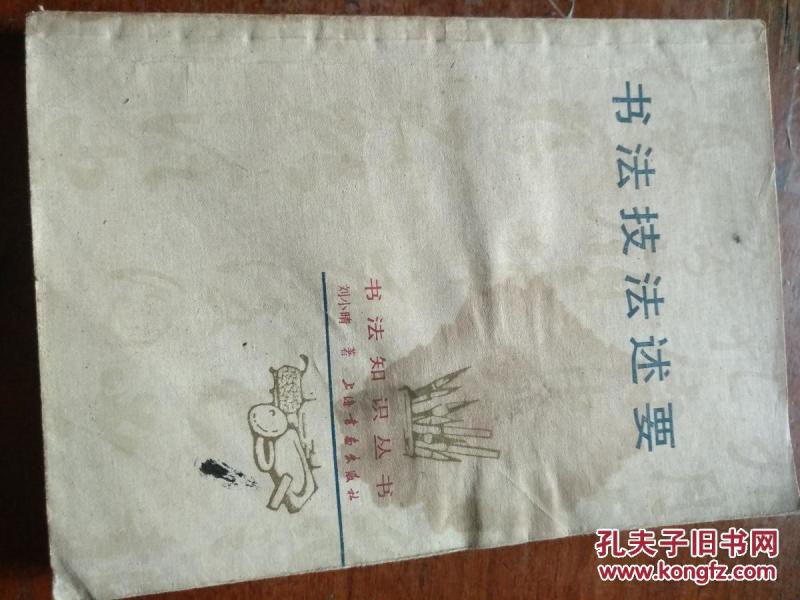 书法技法述要
书法知识丛书
刘小晴 著
上海书画出版社
孔夫子旧书网
www.kongfz.com